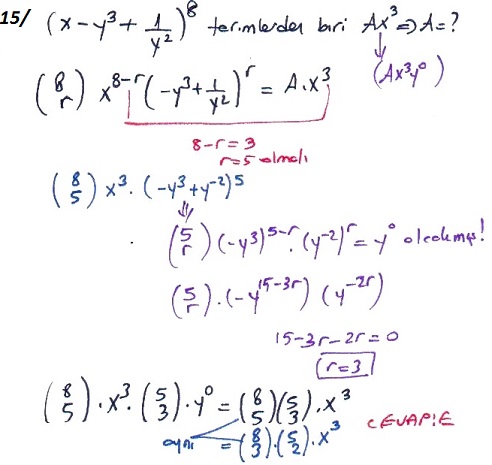 15/ (x - y³ + 1/y²)⁸ terimlerden biri Ax³ ⇒ A = ?
(8 r) x⁸⁻ʳ (-y³ + 1/y²)ʳ = A.x³ (Ax³y⁰)
8-r = 3
r = 5 olmalı
(8 5) x³ . (-y³ + y⁻²)⁵
(5 r) (-y³)⁵⁻ʳ . (y⁻²)ʳ = y⁰ olcakmış!
(5 r) . (-y¹⁵⁻³ʳ) (y⁻²ʳ)
15-3r-2r = 0
r = 3
(8 5) . x³ . (5 3) . y⁰ = (8 5)(5 3) . x³
aynı = (8 3).(5 2) . x³
CEVAP:E